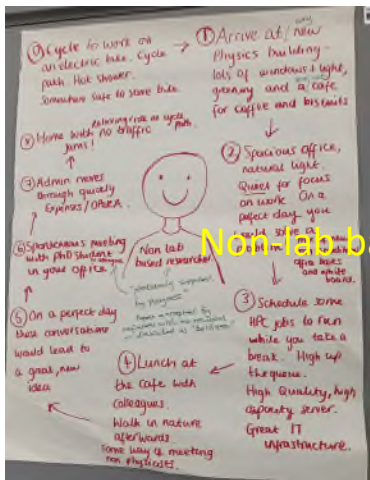 ⓪ Cycle to work on
an electric bike. Cycle
path. Hot shower.
Somewhere safe to store bike.
① Arrive at my new
Physics building
lots of windows + light,
greenery and a cafe
for coffee and biscuits
② Spacious office,
natural light.
Quiet for focus
on work. On a
perfect day you
would solve a
and white
board.
③ Schedule some
HPC jobs to run
while you take a
break. High up
the queue.
High Quality, high
capacity server.
Great IT
infrastructure.
④ Lunch at
the cafe with
colleagues.
Walk in nature
afterwards
Some way of meeting
non physicists.
⑤ On a perfect day
those conversations
would lead to
a great, new
idea
⑥ Spontaneous meeting
with PhD student
in your office.
⑦ Admin moves
through quickly
Expenses / OPERA.
⑧ Home with no traffic
jams!
relaxing ride on cycle
path.
Non lab
based researcher
Non-lab ba